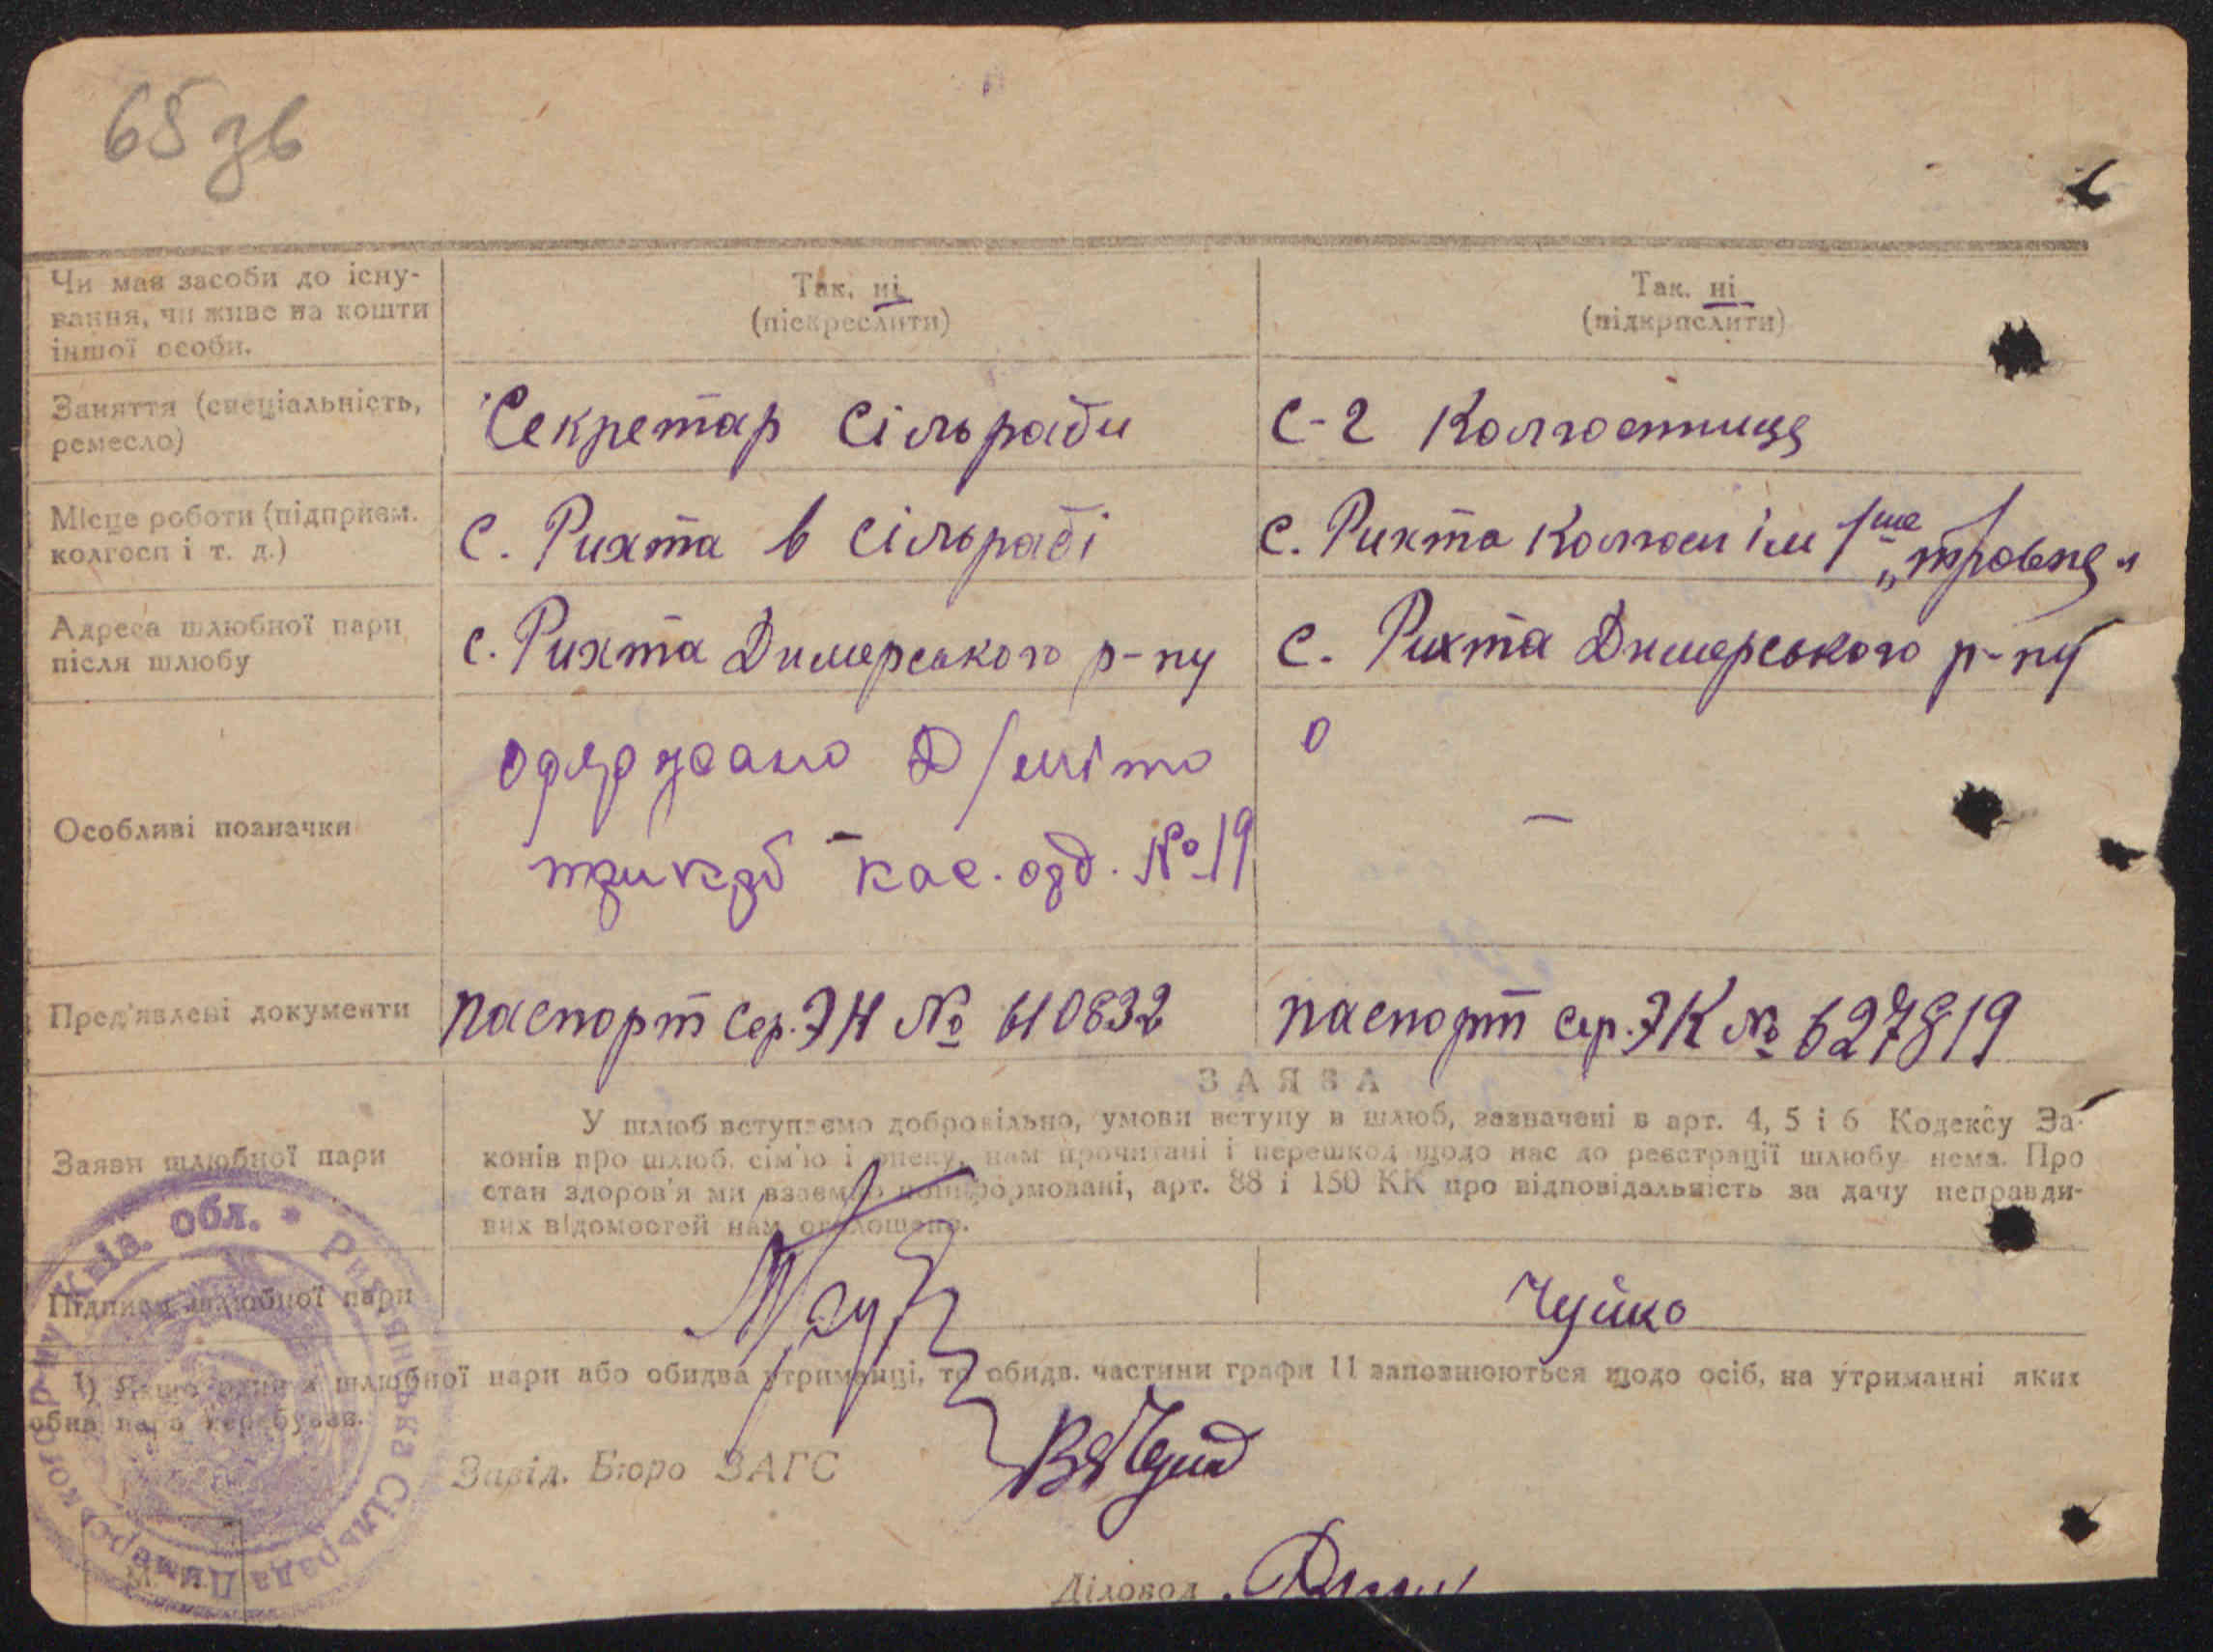 65 зв
Чи має засоби до існу-
вання, чи живе на кошти
іншої особи.
Так, ні
(піскреслити)
Так. ні
(підкрпслити)
Заняття (спеціальність,
ремесло)
Секретар Сільради
с-г Колгоспниця
Місце роботи (підприєм.
колгосп і т. д.)
с. Рихта в сільраді
с. Рихта Колгосп ім 1ше
„травня"
Адреса шлюбної пари
після шлюбу
с. Рихта Димерського р-ну
с. Рихта Димерського р-ну
Особливі позначки
одержано Д/мито
кас. орд. №19
Пред'явлені документи
паспорт Сер. ЭН № 610832
паспорт сер. ЭК № 627819
ЗАЯВА
Заяви шлюбної пари
У шлюб вступаємо добровільно, умови вступу в шлюб, зазначені в арт. 4, 5 і 6 Кодексу За-
конів про шлюб, сім'ю і опеку, нам прочитані і перешкод щодо нас до реєстрації шлюбу нема. Про
стан здоров'я ми взаємно поінформовані, арт. 88 і 150 КК про відповідальність за дачу неправди-
вих відомостей нам оголошено.
Підписи шлюбної пари
Чуйко
1) Якщо один з шлюбної пари або обидва утриманці, то обидв. частини графи 11 заповнюються щодо осіб, на утриманні яких
обна пара перебуває.
Завід. Бюро ЗАГС
Діловод
Сільрада Димерського р-ну Київ. обл.